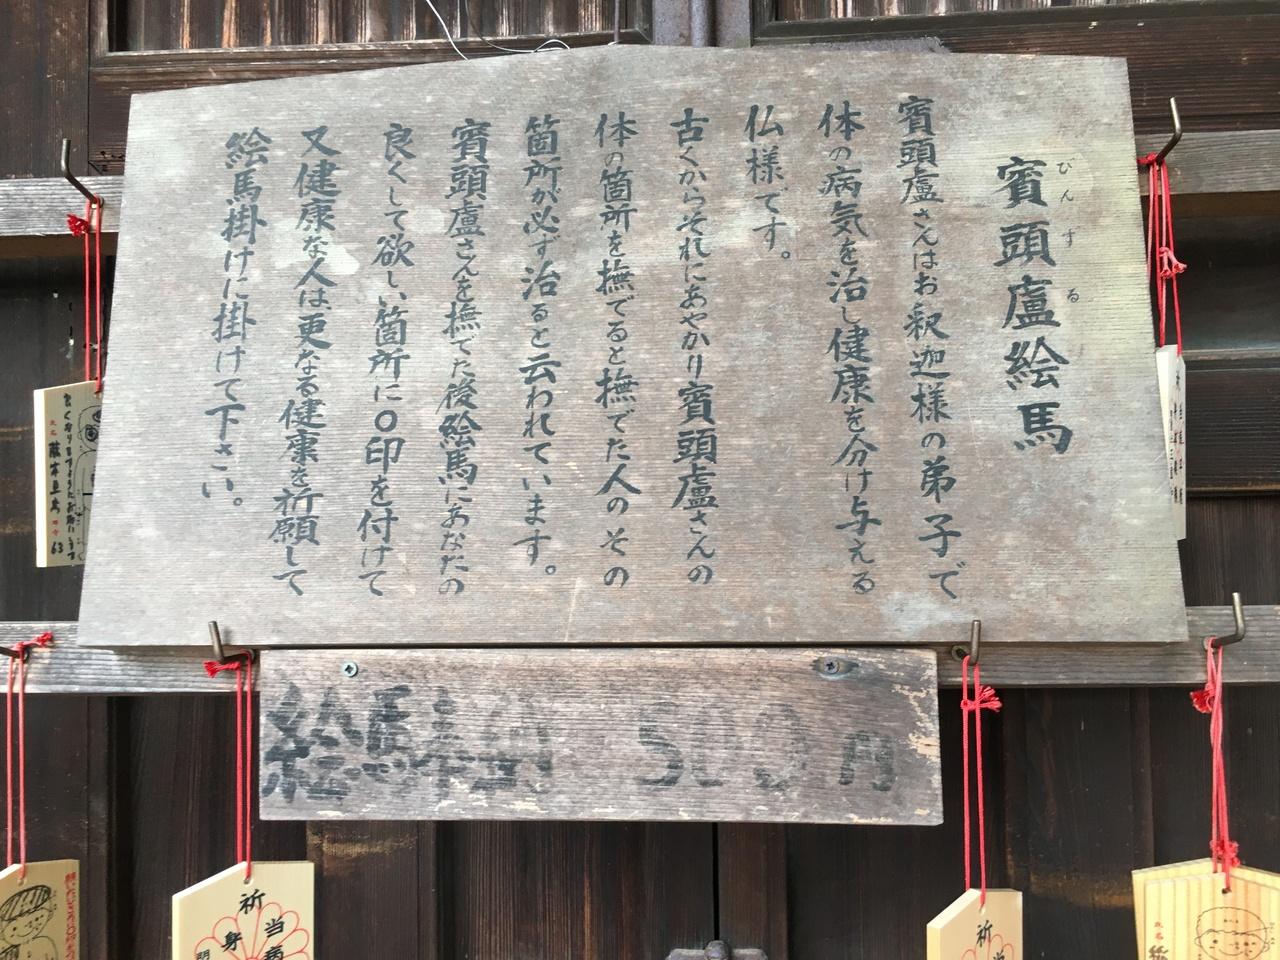 賓頭盧絵馬
びんずる
賓頭盧さんはお釈迦様の弟子で
体の病気を治し健康を分け与える
仏様です。
古くからそれにあやかり賓頭盧さんの
体の箇所を撫でると撫でた人のその
箇所が必ず治ると云われています。
賓頭盧さんを撫でた後絵馬にあなたの
良くして欲しい箇所に〇印を付けて
又健康な人は更なる健康を祈願して
絵馬掛けに掛けて下さい。
絵馬奉納 500円
祈
当病
身
祈
当
氏名
63
氏名